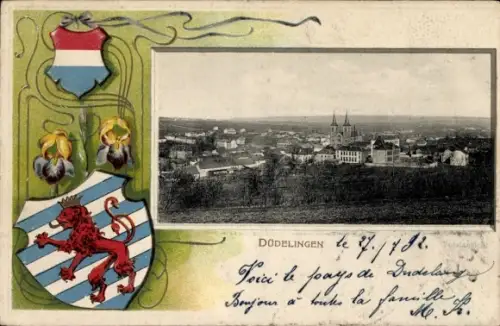 DÜDELINGEN
le 27/7 02
Voici le pays de Dudelange
Bonjour à toute la famille
M. K.